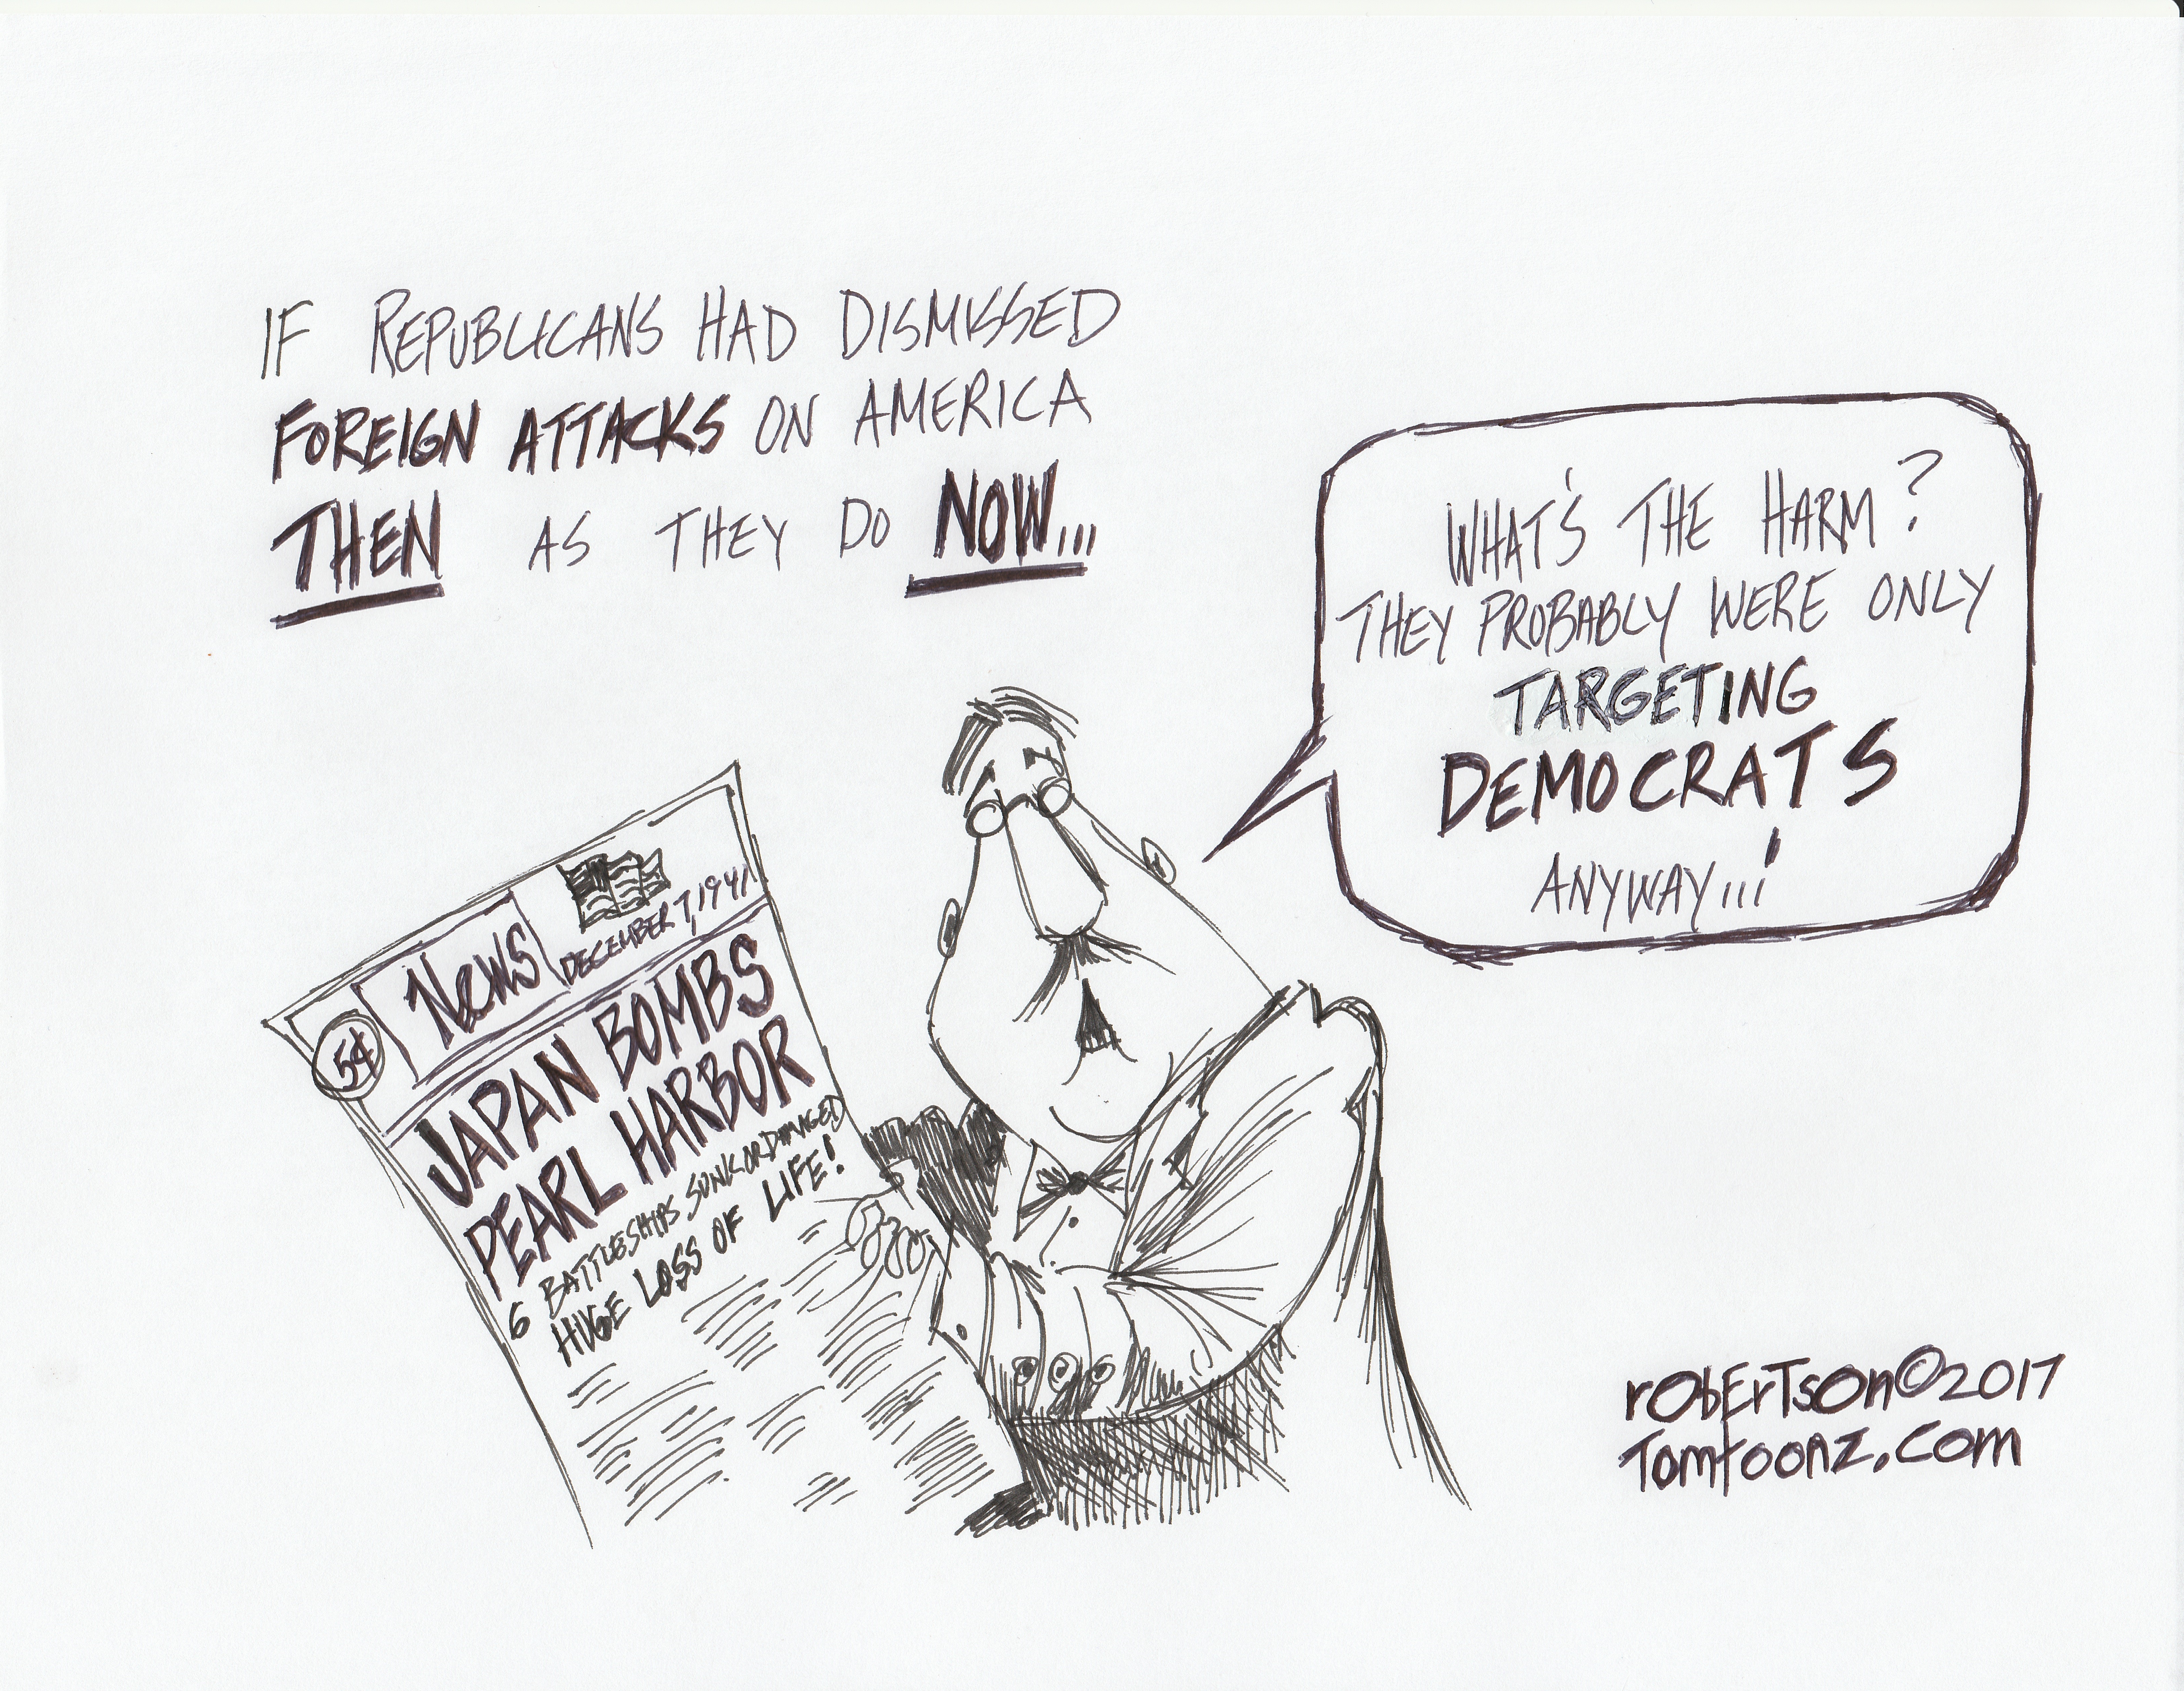 IF REPUBLICANS HAD DISMISSED
FOREIGN ATTACKS ON AMERICA
THEN AS THEY DO NOW...
WHAT'S THE HARM?
THEY PROBABLY WERE ONLY
TARGETING
DEMOCRATS
ANYWAY...!
5¢
News
DECEMBER 7, 1941
JAPAN BOMBS
PEARL HARBOR
6 BATTLESHIPS SUNK OR DAMAGED
HUGE LOSS OF LIFE!
rObErTsOn©2017
Tomtoonz.com